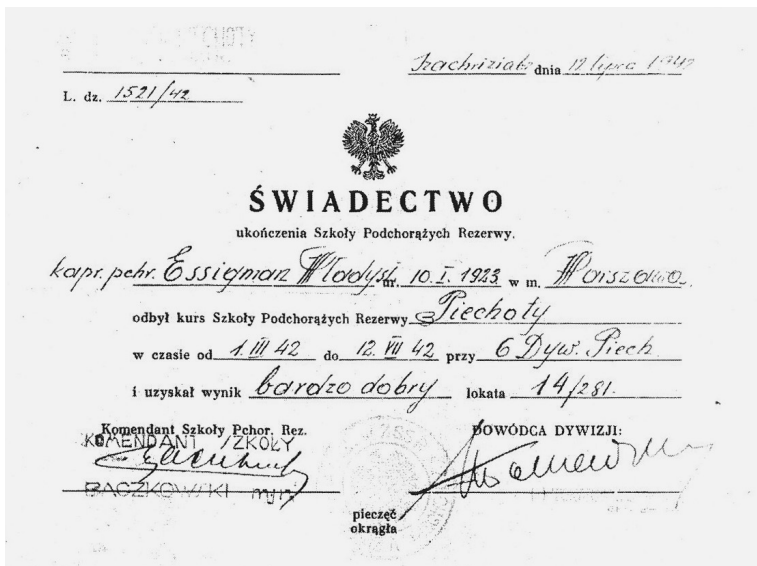 dnia 12 lipca 1942
L. dz. 1521/42
ŚWIADECTWO
ukończenia Szkoły Podchorążych Rezerwy.
kapr. pchr. Essigman Władysł ur. 10. I. 1923 w m. Warszawa
odbył kurs Szkoły Podchorążych Rezerwy Piechoty
w czasie od 1. III 42 do 12. VII 42 przy 6 Dyw. Piech
i uzyskał wynik bardzo dobry lokata 14/281.
Komendant Szkoły Pchor. Rez. DOWÓDCA DYWIZJI:
KOMENDANT SZKOŁY
BĄCZKOWSKI mjr
pieczęć
okrągła